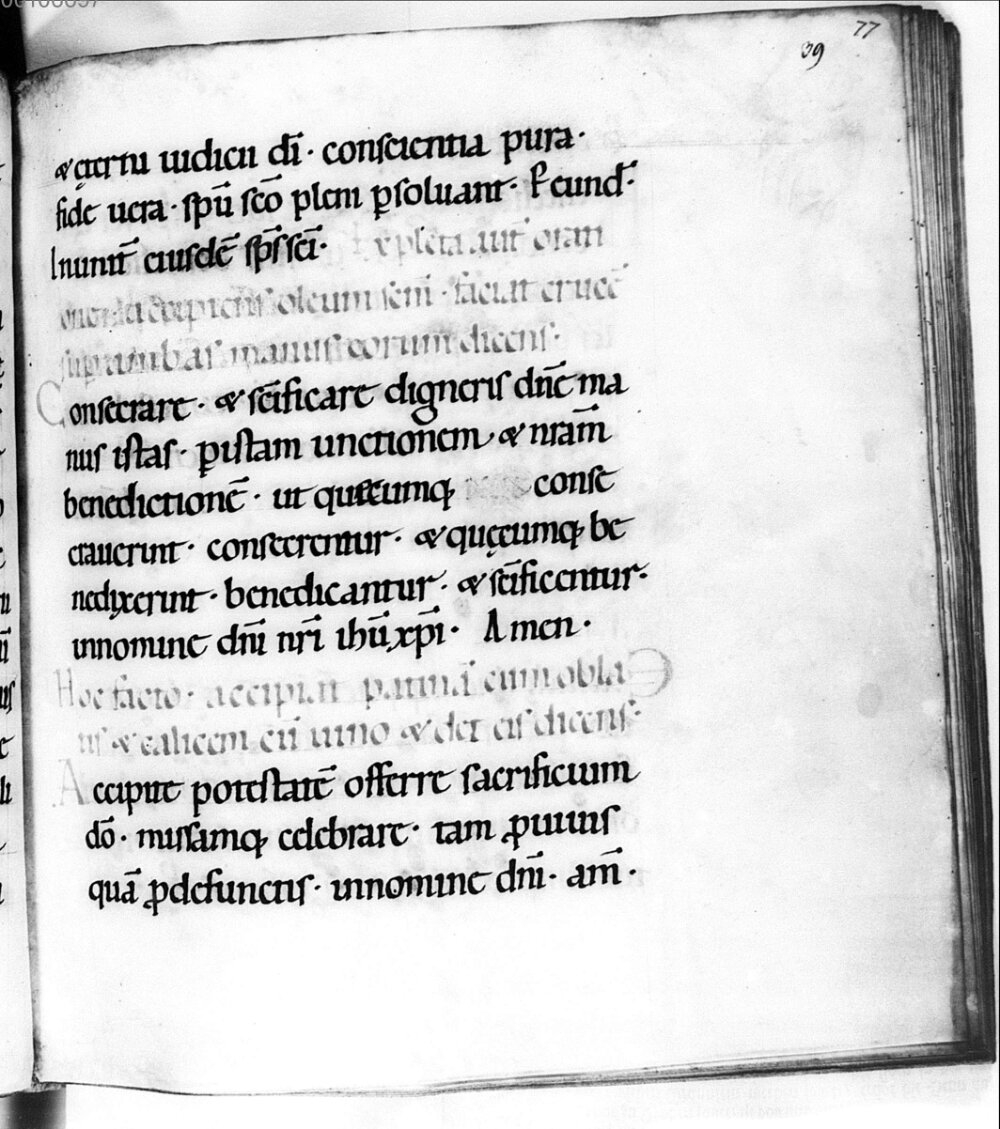 77
39
& ęterni iudicii dī · conscientia pura ·
fide uera · spū scō pleni p̲soluant · P eund̄ ·
In unit̄ eiusdē sp̄s scī · Expleta aut̄ orati
one accipiens oleum · faciat crucē
sup ambas manus eorum dicens ·
Consecrare · & sc̄ificare digneris dn̄e ma
nus istas · p̲ istam unctionem & nr̄am
benedictionē · ut quęcumq; conse
crauerint · consecrentur · & quęcumq; be
nedixerint · benedicantur · & sc̄ificentur ·
innomine dn̄i nr̄i ihū xp̄i · Amen ·
Hoc facto · accipiat patenā cum obla
tis & calicem cū uino & det eis dicens ·
Accipite potestatē offerre sacrificium
dō · missamq; celebrare · tam ꝓ uiuis
quā ꝓ defunctis · innomine dn̄i · am̄ ·